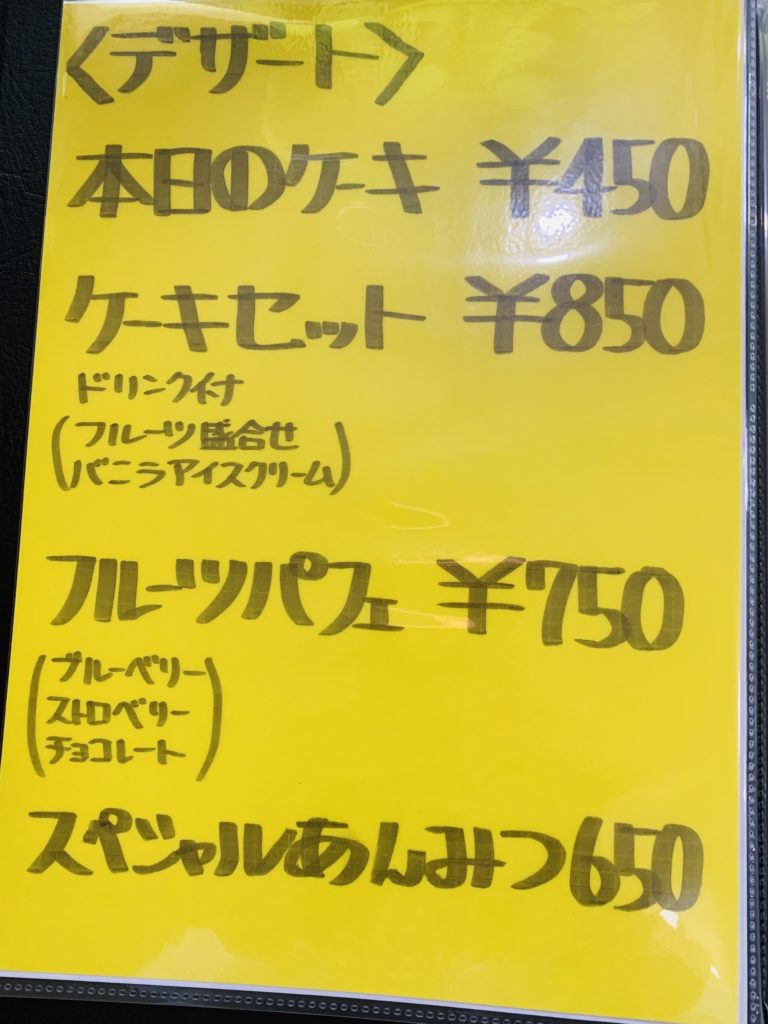 〈デザート〉
本日のケーキ ¥450
ケーキセット ¥850
ドリンク付
(フルーツ盛合せ
バニラアイスクリーム)
フルーツパフェ ¥750
(ブルーベリー
ストロベリー
チョコレート)
スペシャルあんみつ 650